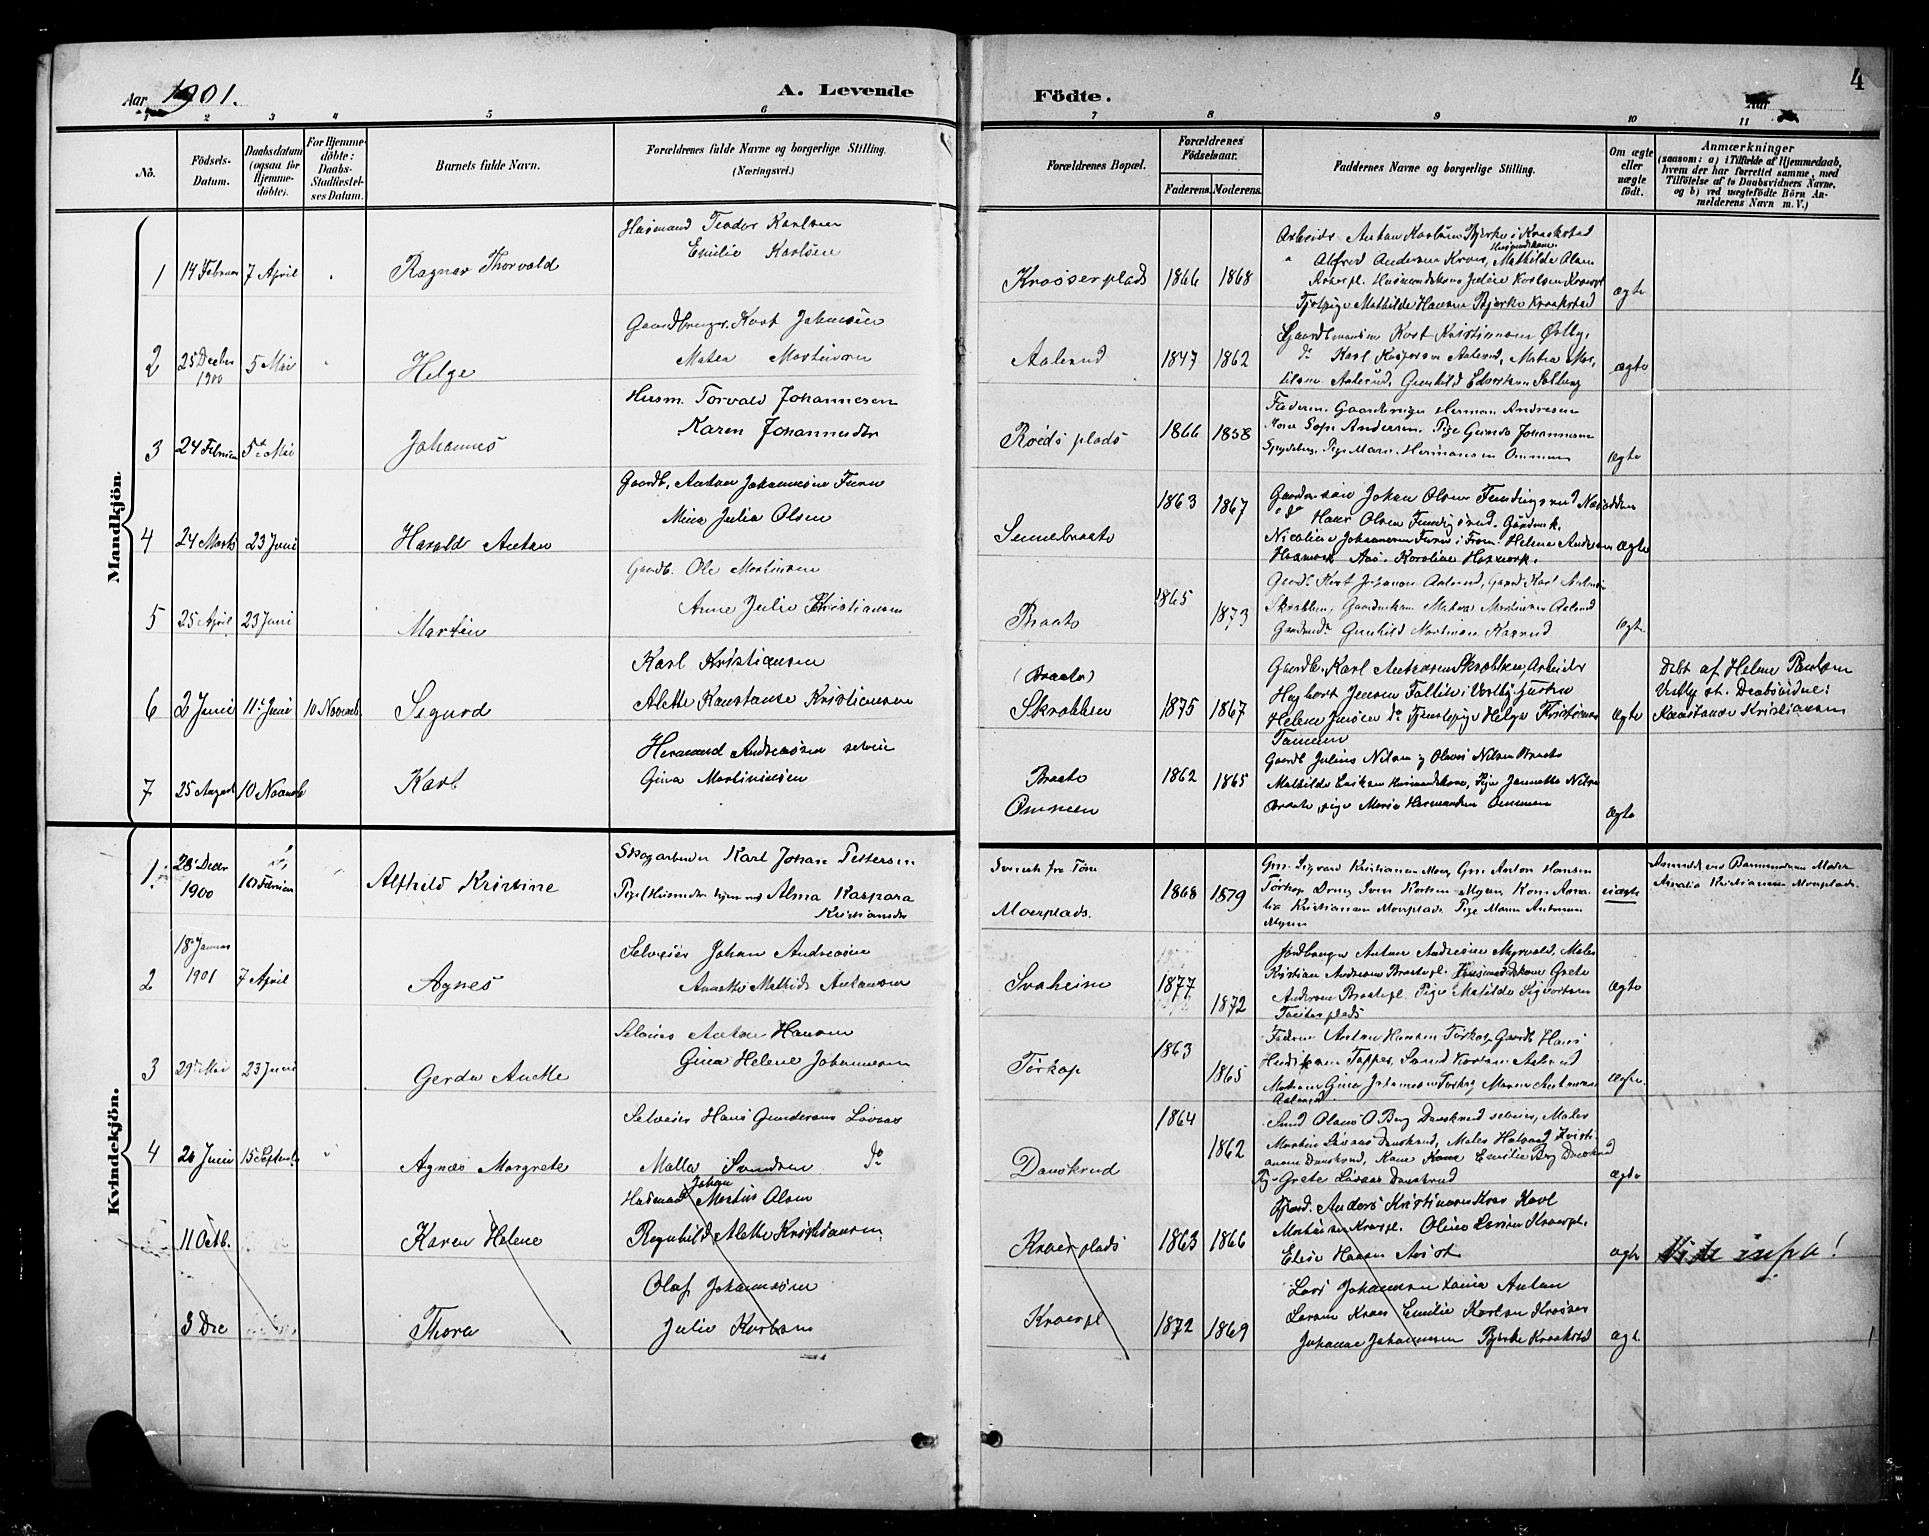 Aar 1901.
A. Levende
Födte.
4
Aar
1 2 3 4 5 6 7 8 9 10 11
No.
Födsels-Datum.
Daabsdatum (ogsaa for Hjemme-döbte).
For Hjemme-döbte: Daabs-Stadfæstel-ses Datum.
Barnets fulde Navn.
Forældrenes fulde Navne og borgerlige Stilling. (Næringsvei.)
Forældrenes Bopæl.
Forældrenes Födselsaar.
Faderens. Moderens.
Faddernes Navne og borgerlige Stilling.
Om ægte eller uægte födt.
Anmærkninger
(saasom: a) i Tilfælde af Hjemmedaab, hvem der har forrettet samme, med Tilföielse af to Daabsvidners Navne, og b) ved uægtefödte Börn An-melderens Navn m. V.)
Mandkjön.
1 14 Februar 7 April Ragnar Thorvald
Husmand Teodor Karlsen
Emilie Karlsen
Kraosserplads 1866 1868
Arbeidr Anton Karlsen Bjerke i Kraakstad
Husmandskone
" Alfred Andersen Kraer, Mathilde Olsen
Kraerpl. Husmandskone Julie Karlsen Kraerpl
Tj.pige Mathilde Hansen Bjerke Kraakstad
ægte
2 25 Decbr 1900 5 Mai Helge
Gaardbruger Kort Johansen
Matea Martinsen
Aalerud 1847 1862
Gaardbrugersøn Kort Kristiansen Østby,
do Karl Kaspersen Aalerud, Matea Mar-
tinsen Aalerud, Gunhild Edvardsen Solberg
ægte
3 24 Februar 5te Mai Johannes
Husm. Torvald Johannesen
Karen Johannesdtr
Roeds plads 1866 1858
Faderen. Gaardbruger Herman Andresen
Kone Sofie Andersen. Pige Gunda Johannesen
Spydeberg, Pige Marn. Hermansen Ommen
ægte
4 24 Marts 23 Juni Harald Anton
Gaardb. Anton Johannesen Furu
Mina Julia Olsen
Sennebraate 1863 1867
Gaardmandssøn Johan Olsen Fundingsrud Næsodden
" do Hans Olsen Fundigsrud. Gaardmk.
Nicoline Johannesen Furu i Fron. Helene Andresen
Haamork Aas. Karoline Haamork.
ægte
5 25 April 23 Juni Martin
Gaardb. Ole Martinsen
Anne Julie Kristiansen
Braate 1865 1873
Gaardb. Kort Johansen Aalerud, Gaardb Karl Antonsen
Skrabben, Gaardmkone Matea Martinsen Aalerud
Gaardmds Gunhild Martinsen Kaserud
ægte
6 2 Juni 11te Juni 10 Novemb Sigurd
Karl Kristiansen
Alette Konstanse Kristiansen
(Braate)
Skrabben 1875 1867
Gaardb. Karl Antonsen Skrabben, Arbeider
Hagbart Jensen Follin i Vestby, Hustru
Helene Jensen do Tjenestepige Helga Kristiansen
Tomeen
ægte
Døbt af Helene Paulsen
Vestby st. Daabsvidne:
Konstanse Kristiansen
7 25 August 10 Novemb Karl
Hermand Andreasen selveier
Gina Martiniusen
Braate
Ommen 1862 1865
Gaardb Julius Nilsen og Olaves Nilsen Braate
Mathilde Eriksen Husmandskone, Pige Jannette Nilsen
Braate, pige Marie Hermansen Ommen
ægte
Kvindekjön.
1. 28 Decbr 1900 10 Februar Alfhild Kristine
Skogarbeider Karl Johan Pettersen
Pige Husmdtr hjemme Alma Kaspara
Kristiansdtr
Svensk fra Tøn
Moerplads. 1868 1879
Gm. Sigvard Kristiansen Moer, Gm. Anton Hansen
Tørkop Dreng Sven Kortsen Myren, Kone Ama-
lia Kristiansen Moerplads Pige Maren Antonsen
Myren
uægte
Anmeldt ved Barnemoderens Moder
Amalia Kristiansen Moerplads.
2 18 Januar 1901 7 April Agnes
Selveier Johan Andreasen
Annette Mathilde Antonsen
Svaheim 1877 1872
Jordbruger Anton Andresen Myrvold, Maler
Kristian Andresen Braatepl. Husmandskone Grete
Andersen Braatepl. Pige Matilde Sigvartsen
Tasiterplads
ægte
3 29 Mai 23 Juni Gerda Anette
Selveier Anton Hansen
Gina Helene Johannesen
Tørkop 1863 1865
Faderen Anton Hansen Tørkop, Gaardb Hans
Hendriksen Topper, Svend Kortsen Aalerud
Moderen Gina Johannesen Tørkop Maren Antonsen
Aalerud
ægte
4 20 Juni 15 Septbr Agnes Margrete
Selveier Hans Gundersen Løvaas
Malla Svendsen do
Danskrud 1864 1862
Smed Olaus O Berg Danskrud selveier, Maler
Martin Løvaas Danskrud, Maler Halvard Kristi-
ansen Danskrud, Kone Kone Emilie Berg Danskrud
Pige Grete Løvaas Danskrud
ægte
11 Octb. Karen Helene
Husmand Johan Martin Olsen
Regnhild Alette Kristiansen
Kraerplads 1863 1866
Gaard. Anders Kristiansen Kraer Karl
Mortensen Kraerpl. Oline Larsen Kraerpl.
Elise Hansen Aaröt
ægte
Vide infra!
3 Dec Thora
Olaf Johannesen
Julie Karlsen
Kraerpl 1872 1869
Lars Johansen Laura Anton
Larsen Kraer Emilie Karlsen Krosser
Johanne Johannesen Bjerke Kraakstad
ægte